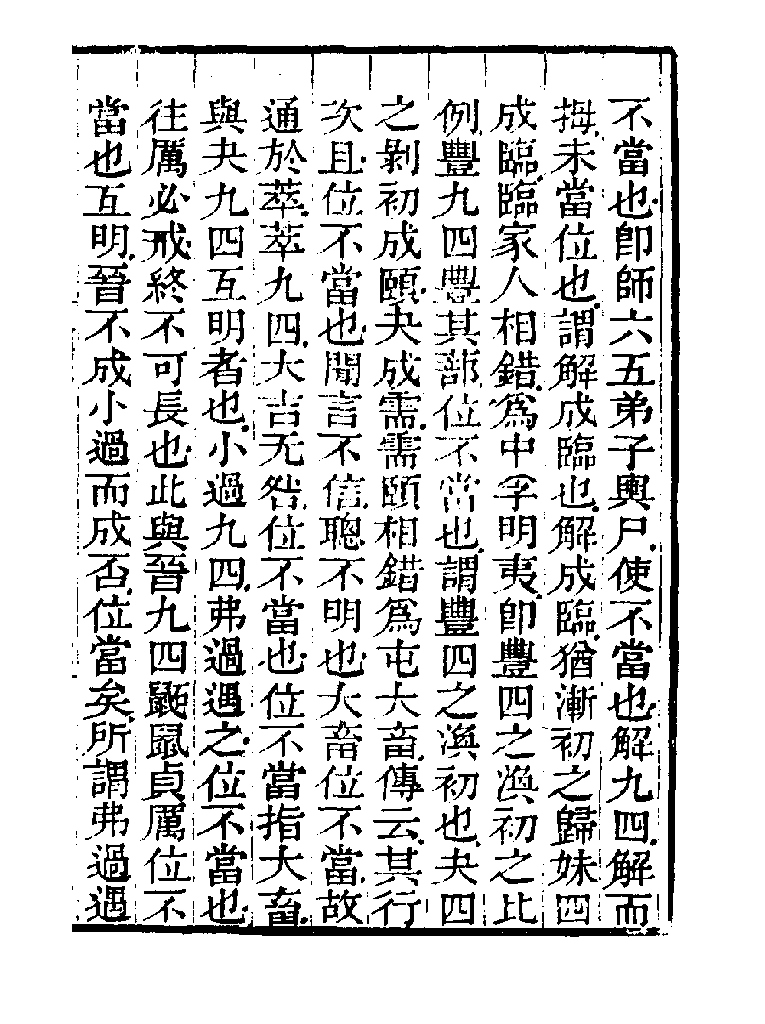 不當也卽師六五弟子輿尸使不當也解九四解而
拇未當位也謂解成臨也解成臨猶漸初之歸妹四
成臨臨家人相錯爲中孚明夷卽豐四之渙初之比
例豐九四豐其蔀位不當也謂豐四之渙初也夬四
之剝初成頤夬成需需頤相錯爲屯大畜傳云其行
次且位不當也聞言不信聰不明也大畜位不當故
通於萃萃九四大吉无咎位不當也位不當指大畜
與夬九四互明者也小過九四弗過遇之位不當也
往厲必戒終不可長也此與晉九四鼫鼠貞厲位不
當也互明晉不成小過而成否位當矣所謂弗過遇